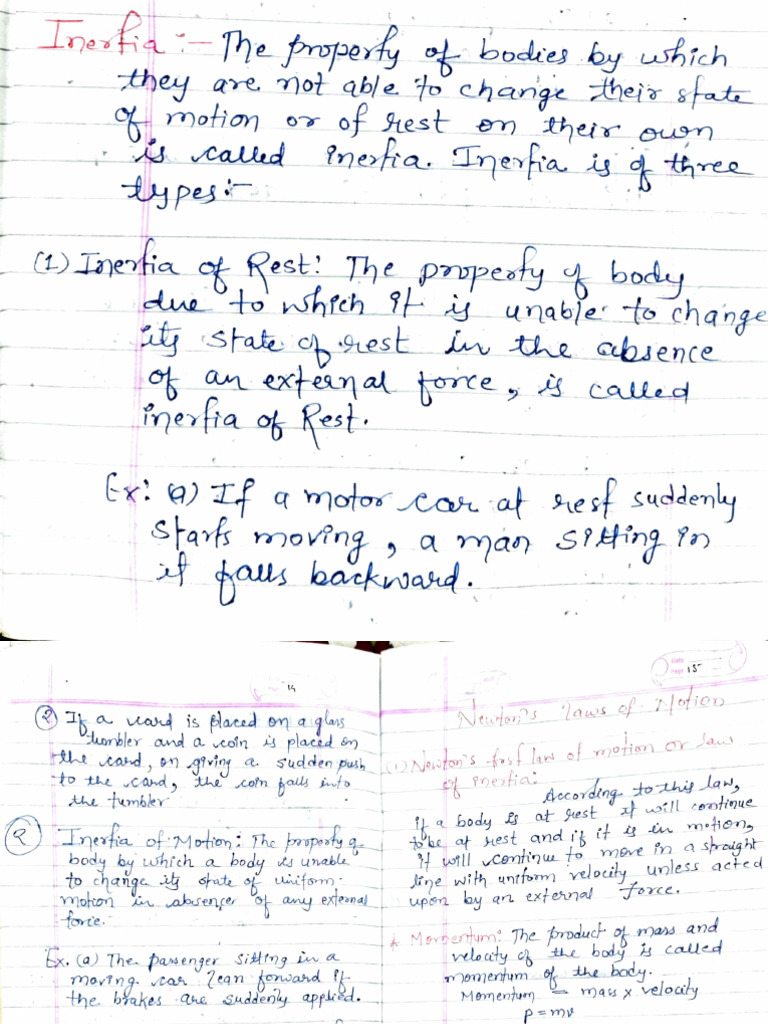 Inertia :- The property of bodies by which
they are not able to change their state
of motion or of rest on their own
is called inertia. Inertia is of three
types:-
(1) Inertia of Rest: The property of body
due to which it is unable to change
its state of rest in the absence
of an external force, is called
inertia of Rest.
Ex: (a) If a motor car at rest suddenly
starts moving, a man sitting in
it falls backward.
14
② If a card is placed on a glass
tumbler and a coin is placed on
the card, on giving a sudden push
to the card, the coin falls into
the tumbler
② Inertia of Motion: The property of
body by which a body is unable
to change its state of uniform
motion in absence of any external
force.
Ex. (a) The passenger sitting in a
moving car lean forward if
the brakes are suddenly applied.
Date
Page 15
Newton's laws of Motion
(1) Newton's first law of motion or law
of inertia:
According to this law,
if a body is at rest it will continue
to be at rest and if it is in motion,
it will continue to move in a straight
line with uniform velocity unless acted
upon by an external force.
* Momentum: The product of mass and
velocity of the body is called
momentum of the body.
Momentum = mass x velocity
p = mv